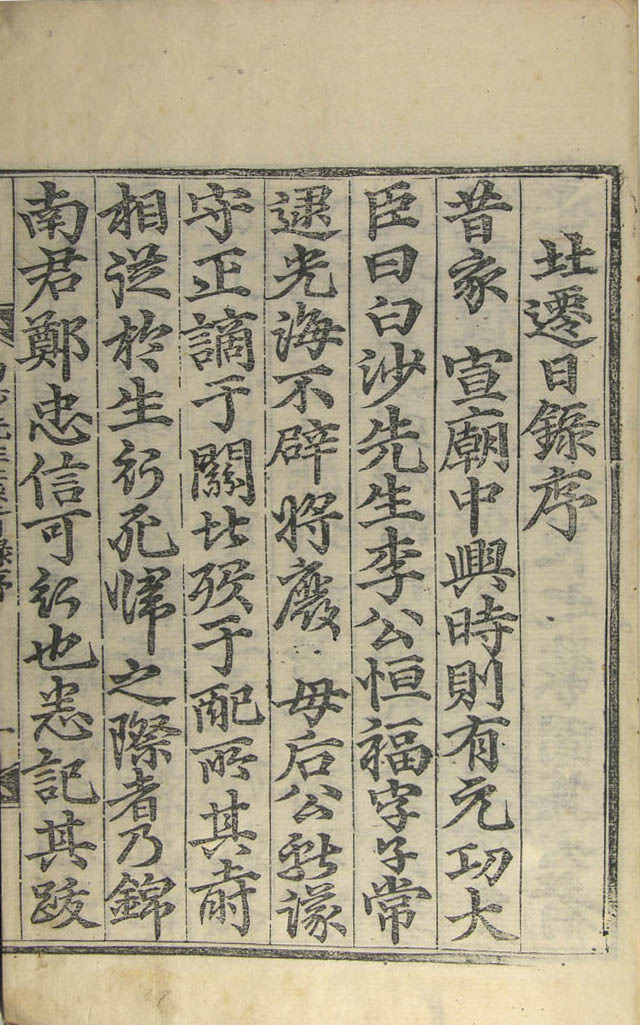 北遷日錄序
昔家 宣廟中興時則有元功大
臣曰白沙先生李公恒福字子常
逮光海不辟將廢 母后公獻議
守正謫于關北歿于配所其時
相從於生行死歸之際者乃錦
南君鄭忠信可行也悉記其跋